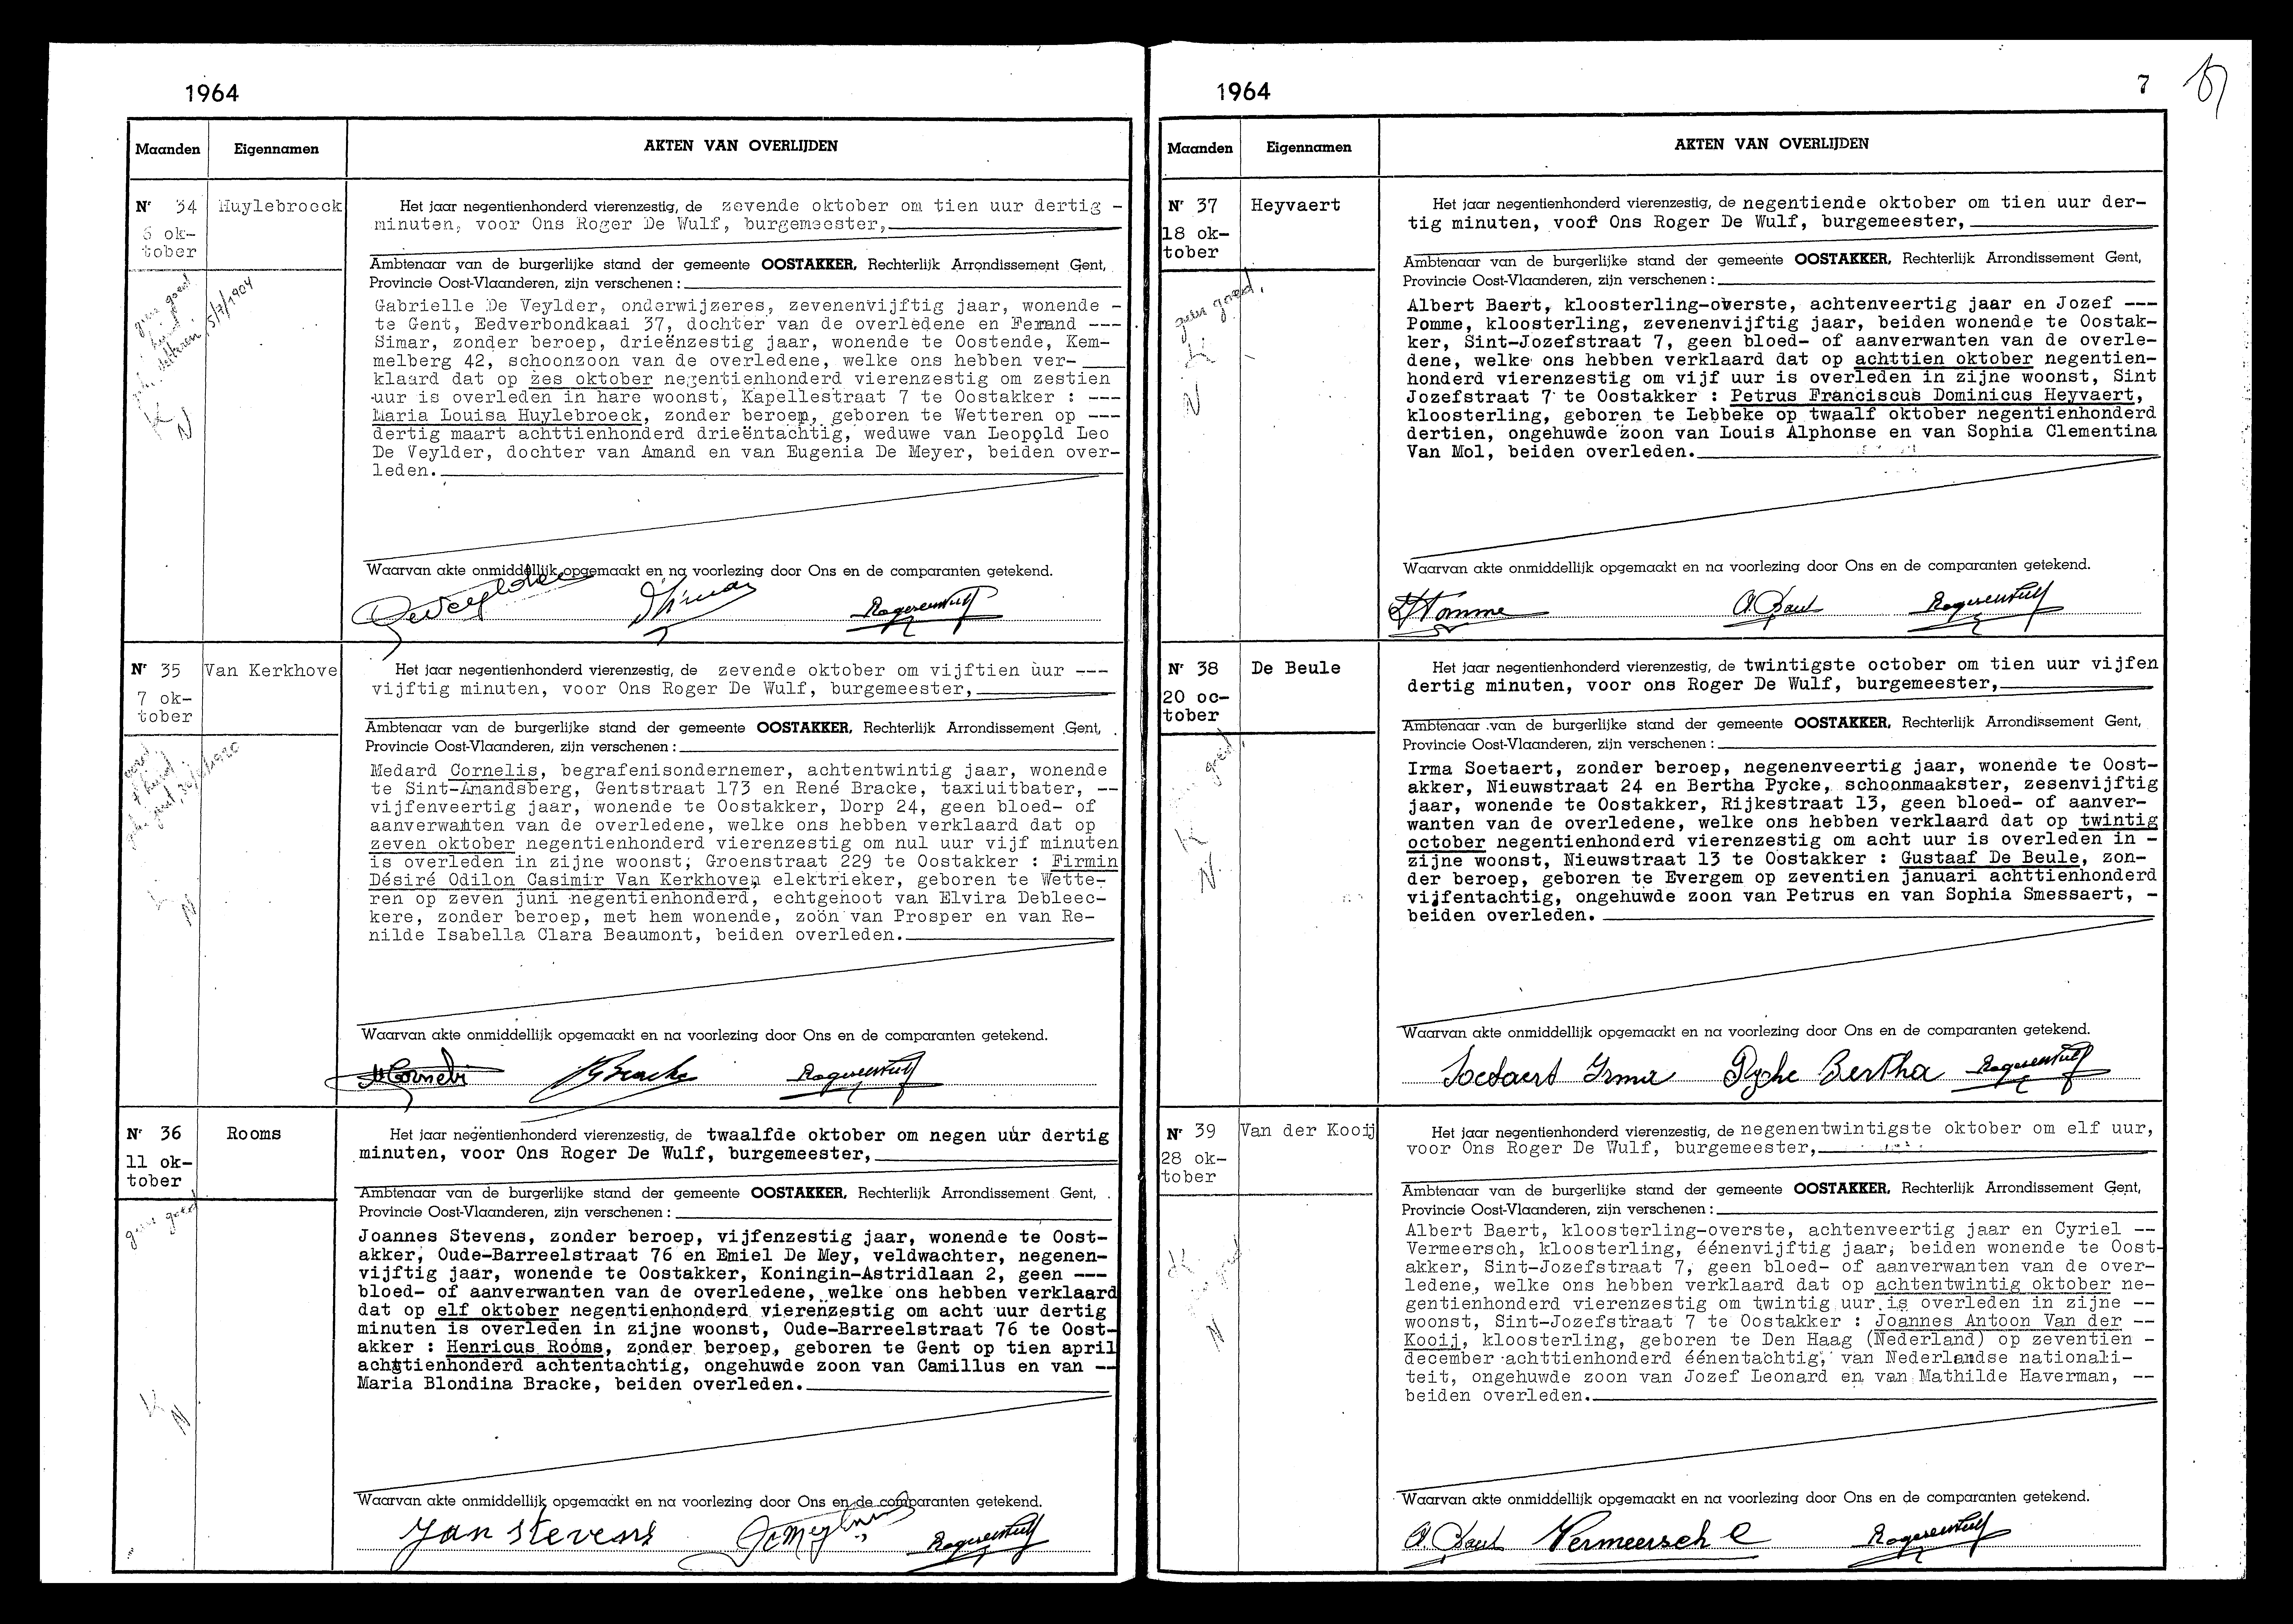 1964
Maanden
Eigennamen
AKTEN VAN OVERLIJDEN
Nr 34
6 ok-
tober
Huylebroeck
Het jaar negentienhonderd vierenzestig, de zevende oktober om tien uur dertig -
minuten, voor Ons Roger De Wulf, burgemeester,
Ambtenaar van de burgerlijke stand der gemeente OOSTAKKER, Rechterlijk Arrondissement Gent,
Provincie Oost-Vlaanderen, zijn verschenen :
Gabrielle De Veylder, onderwijzeres, zevenenvijftig jaar, wonende -
te Gent, Eedverbondkaai 37, dochter van de overledene en Fernand ---
Simar, zonder beroep, drieënzestig jaar, wonende te Oostende, Kem-
melberg 42, schoonzoon van de overledene, welke ons hebben ver-
klaard dat op zes oktober negentienhonderd vierenzestig om zestien
uur is overleden in hare woonst, Kapellestraat 7 te Oostakker : ---
Maria Louisa Huylebroeck, zonder beroep, geboren te Wetteren op ---
dertig maart achttienhonderd drieëntachtig, weduwe van Leopold Leo
De Veylder, dochter van Amand en van Eugenia De Meyer, beiden over-
leden.
geen goed
5/7/1904
K
N
Waarvan akte onmiddellijk opgemaakt en na voorlezing door Ons en de comparanten getekend.
Nr 35
7 ok-
tober
Van Kerkhove
Het jaar negentienhonderd vierenzestig, de zevende oktober om vijftien uur ---
vijftig minuten, voor Ons Roger De Wulf, burgemeester,
Ambtenaar van de burgerlijke stand der gemeente OOSTAKKER, Rechterlijk Arrondissement Gent,
Provincie Oost-Vlaanderen, zijn verschenen :
Medard Cornelis, begrafenisondernemer, achtentwintig jaar, wonende
te Sint-Amandsberg, Gentstraat 173 en René Bracke, taxiuitbater, --
vijfenveertig jaar, wonende te Oostakker, Dorp 24, geen bloed- of
aanverwanten van de overledene, welke ons hebben verklaard dat op
zeven oktober negentienhonderd vierenzestig om nul uur vijf minuten
is overleden in zijne woonst, Groenstraat 229 te Oostakker : Firmin
Désiré Odilon Casimir Van Kerkhove, elektrieker, geboren te Wette-
ren op zeven juni negentienhonderd, echtgenoot van Elvira Debleec-
kere, zonder beroep, met hem wonende, zoön van Prosper en van Re-
nilde Isabella Clara Beaumont, beiden overleden.
N
Waarvan akte onmiddellijk opgemaakt en na voorlezing door Ons en de comparanten getekend.
M Cornelis R Bracke Roger De Wulf
Nr 36
11 ok-
tober
Rooms
Het jaar negentienhonderd vierenzestig, de twaalfde oktober om negen uur dertig
minuten, voor Ons Roger De Wulf, burgemeester,
Ambtenaar van de burgerlijke stand der gemeente OOSTAKKER, Rechterlijk Arrondissement Gent,
Provincie Oost-Vlaanderen, zijn verschenen :
Joannes Stevens, zonder beroep, vijfenzestig jaar, wonende te Oost-
akker, Oude-Barreelstraat 76 en Emiel De Mey, veldwachter, negenen-
vijftig jaar, wonende te Oostakker, Koningin-Astridlaan 2, geen ---
bloed- of aanverwanten van de overledene, welke ons hebben verklaard
dat op elf oktober negentienhonderd vierenzestig om acht uur dertig
minuten is overleden in zijne woonst, Oude-Barreelstraat 76 te Oost-
akker : Henricus Rooms, zonder beroep, geboren te Gent op tien april
achttienhonderd achtentachtig, ongehuwde zoon van Camillus en van --
Maria Blondina Bracke, beiden overleden.
geen goed
K
N
Waarvan akte onmiddellijk opgemaakt en na voorlezing door Ons en de comparanten getekend.
Jan Stevens Roger De Wulf
1964
7
Maanden
Eigennamen
AKTEN VAN OVERLIJDEN
Nr 37
18 ok-
tober
Heyvaert
Het jaar negentienhonderd vierenzestig, de negentiende oktober om tien uur der-
tig minuten, voor Ons Roger De Wulf, burgemeester,
Ambtenaar van de burgerlijke stand der gemeente OOSTAKKER, Rechterlijk Arrondissement Gent,
Provincie Oost-Vlaanderen, zijn verschenen :
Albert Baert, kloosterling-overste, achtenveertig jaar en Jozef ---
Pomme, kloosterling, zevenenvijftig jaar, beiden wonende te Oostak-
ker, Sint-Jozefstraat 7, geen bloed- of aanverwanten van de overle-
dene, welke ons hebben verklaard dat op achttien oktober negentien-
honderd vierenzestig om vijf uur is overleden in zijne woonst, Sint
Jozefstraat 7 te Oostakker : Petrus Franciscus Dominicus Heyvaert,
kloosterling, geboren te Lebbeke op twaalf oktober negentienhonderd
dertien, ongehuwde zoon van Louis Alphonse en van Sophia Clementina
Van Mol, beiden overleden.
geen goed.
K
N
Waarvan akte onmiddellijk opgemaakt en na voorlezing door Ons en de comparanten getekend.
J Pomme A. Baert Roger De Wulf
Nr 38
20 oc-
tober
De Beule
Het jaar negentienhonderd vierenzestig, de twintigste october om tien uur vijfen
dertig minuten, voor ons Roger De Wulf, burgemeester,
Ambtenaar van de burgerlijke stand der gemeente OOSTAKKER, Rechterlijk Arrondissement Gent,
Provincie Oost-Vlaanderen, zijn verschenen :
Irma Soetaert, zonder beroep, negenenveertig jaar, wonende te Oost-
akker, Nieuwstraat 24 en Bertha Pycke, schoonmaakster, zesenvijftig
jaar, wonende te Oostakker, Rijkestraat 13, geen bloed- of aanver-
wanten van de overledene, welke ons hebben verklaard dat op twintig
october negentienhonderd vierenzestig om acht uur is overleden in -
zijne woonst, Nieuwstraat 13 te Oostakker : Gustaaf De Beule, zon-
der beroep, geboren te Evergem op zeventien januari achttienhonderd
vijfentachtig, ongehuwde zoon van Petrus en van Sophia Smessaert, -
beiden overleden.
K
N
Waarvan akte onmiddellijk opgemaakt en na voorlezing door Ons en de comparanten getekend.
Soetaert Irma Pycke Bertha Roger De Wulf
Nr 39
28 ok-
tober
Van der Kooij
Het jaar negentienhonderd vierenzestig, de negenentwintigste oktober om elf uur,
voor Ons Roger De Wulf, burgemeester,
Ambtenaar van de burgerlijke stand der gemeente OOSTAKKER, Rechterlijk Arrondissement Gent,
Provincie Oost-Vlaanderen, zijn verschenen :
Albert Baert, kloosterling-overste, achtenveertig jaar en Cyriel --
Vermeersch, kloosterling, éénenvijftig jaar, beiden wonende te Oost-
akker, Sint-Jozefstraat 7, geen bloed- of aanverwanten van de over-
ledene, welke ons hebben verklaard dat op achtentwintig oktober ne-
gentienhonderd vierenzestig om twintig uur is overleden in zijne --
woonst, Sint-Jozefstraat 7 te Oostakker : Joannes Antoon Van der --
Kooij, kloosterling, geboren te Den Haag (Nederland) op zeventien -
december achttienhonderd éénentachtig, van Nederlandse nationali-
teit, ongehuwde zoon van Jozef Leonard en van Mathilde Haverman, --
beiden overleden.
K
N
Waarvan akte onmiddellijk opgemaakt en na voorlezing door Ons en de comparanten getekend.
A. Baert Vermeersch C Roger De Wulf